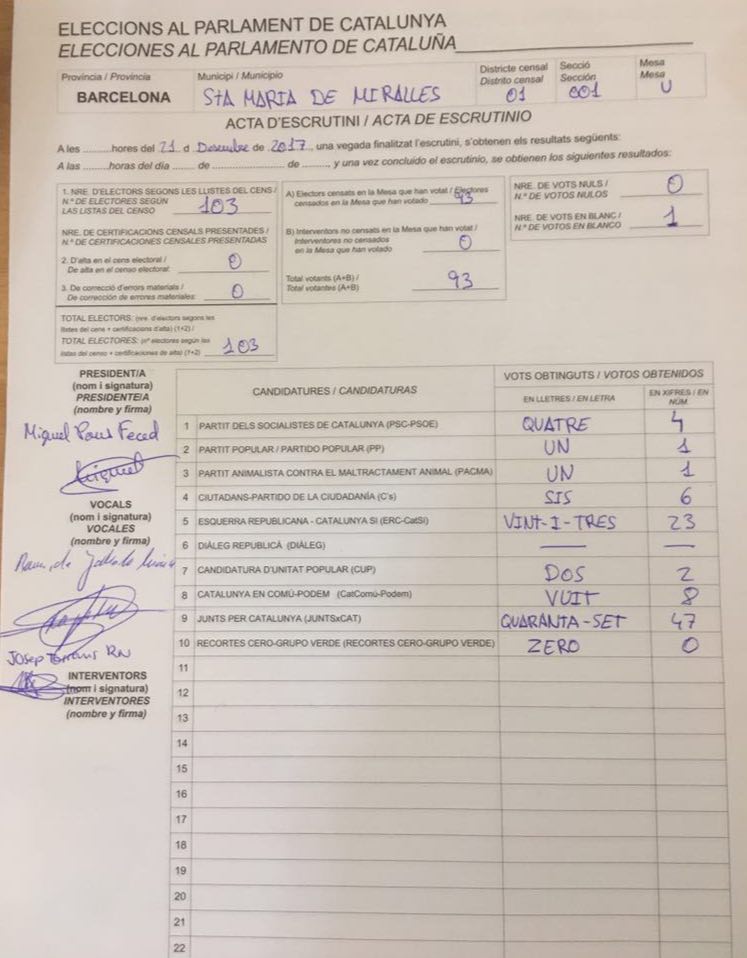 ELECCIONS AL PARLAMENT DE CATALUNYA
ELECCIONES AL PARLAMENTO DE CATALUÑA
Província / Provincia
BARCELONA
Municipi / Municipio
STA MARIA DE MIRALLES
Districte censal
Distrito censal
01
Secció
Sección
001
Mesa
Mesa
U
ACTA D'ESCRUTINI / ACTA DE ESCRUTINIO
A les .........hores del 21 d Desembre de 2017, una vegada finalitzat l'escrutini, s'obtenen els resultats següents:
A las .........horas del día ....... de .......................... de ........, y una vez concluido el escrutinio, se obtienen los siguientes resultados:
1. NRE. D'ELECTORS SEGONS LES LLISTES DEL CENS /
N.º DE ELECTORES SEGÚN
LAS LISTAS DEL CENSO 103
NRE. DE CERTIFICACIONS CENSALS PRESENTADES /
N.º DE CERTIFICACIONES CENSALES PRESENTADAS
2. D'alta en el cens electoral /
De alta en el censo electoral: 0
3. De correcció d'errors materials /
De corrección de errores materiales: 0
TOTAL ELECTORS: (nre. d'electors segons les
llistes del cens + certificacions d'alta) (1+2) /
TOTAL ELECTORES: (nº electores según las
listas del censo + certificaciones de alta) (1+2) 103
A) Electors censats en la Mesa que han votat / Electores
censados en la Mesa que han votado 93
B) Interventors no censats en la Mesa que han votat /
Interventores no censados
en la Mesa que han votado 0
Total votants (A+B) /
Total votantes (A+B) 93
NRE. DE VOTS NULS /
N.º DE VOTOS NULOS 0
NRE. DE VOTS EN BLANC /
N.º DE VOTOS EN BLANCO 1
PRESIDENT/A
(nom i signatura)
PRESIDENTE/A
(nombre y firma)
Miquel Pous
Miquel
VOCALS
(nom i signatura)
VOCALES
(nombre y firma)
Josep
INTERVENTORS
(nom i signatura)
INTERVENTORES
(nombre y firma)
CANDIDATURES / CANDIDATURAS
VOTS OBTINGUTS / VOTOS OBTENIDOS
EN LLETRES / EN LETRA
EN XIFRES / EN NÚM.
1 PARTIT DELS SOCIALISTES DE CATALUNYA (PSC-PSOE) QUATRE 4
2 PARTIT POPULAR / PARTIDO POPULAR (PP) UN 1
3 PARTIT ANIMALISTA CONTRA EL MALTRACTAMENT ANIMAL (PACMA) UN 1
4 CIUTADANS-PARTIDO DE LA CIUDADANÍA (C's) SIS 6
5 ESQUERRA REPUBLICANA - CATALUNYA SÍ (ERC-CatSí) VINT-I-TRES 23
6 DIÀLEG REPUBLICÀ (DIÀLEG) — —
7 CANDIDATURA D'UNITAT POPULAR (CUP) DOS 2
8 CATALUNYA EN COMÚ-PODEM (CatComú-Podem) VUIT 8
9 JUNTS PER CATALUNYA (JUNTSxCAT) QUARANTA-SET 47
10 RECORTES CERO-GRUPO VERDE (RECORTES CERO-GRUPO VERDE) ZERO 0
11
12
13
14
15
16
17
18
19
20
21
22